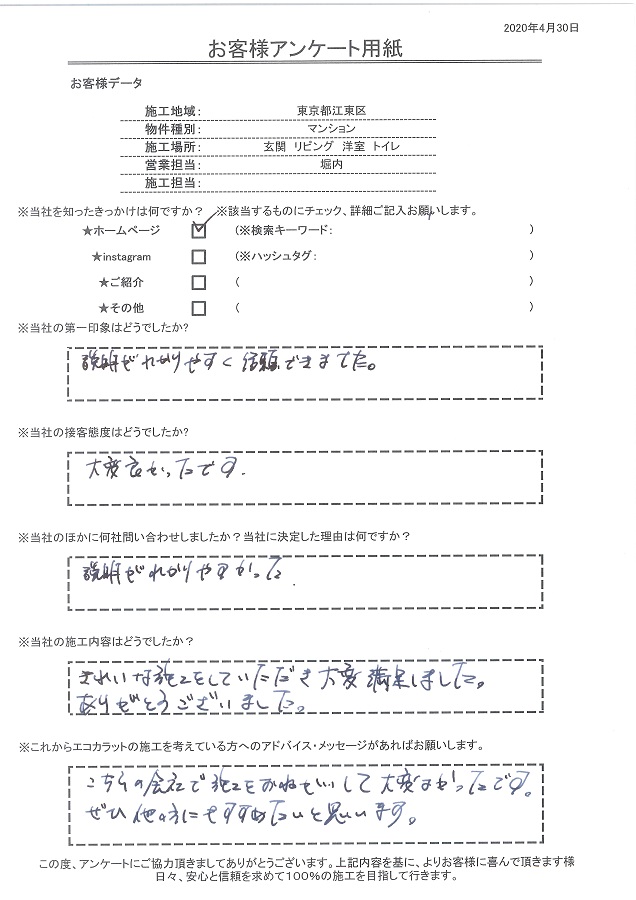 2020年4月30日
お客様アンケート用紙
お客様データ
施工地域： 東京都江東区
物件種別： マンション
施工場所： 玄関 リビング 洋室 トイレ
営業担当： 堀内
施工担当：
※当社を知ったきっかけは何ですか？ ※該当するものにチェック、詳細ご記入お願いします。
★ホームページ (※検索キーワード： )
★instagram (※ハッシュタグ： )
★ご紹介 ( )
★その他 ( )
※当社の第一印象はどうでしたか?
説明がわかりやすく信頼できました。
※当社の接客態度はどうでしたか?
大変良かったです.
※当社のほかに何社問い合わせしましたか？当社に決定した理由は何ですか？
説明がわかりやすかった.
※当社の施工内容はどうでしたか？
きれいな施工をしていただき大変満足しました。
ありがとうございました。
※これからエコカラットの施工を考えている方へのアドバイス・メッセージがあればお願いします。
こちらの会社で施工をおねがいして大変よかったです。
ぜひ他の方にもすすめたいと思います。
この度、アンケートにご協力頂きましてありがとうございます。上記内容を基に、よりお客様に喜んで頂きます様
日々、安心と信頼を求めて100％の施工を目指して行きます。